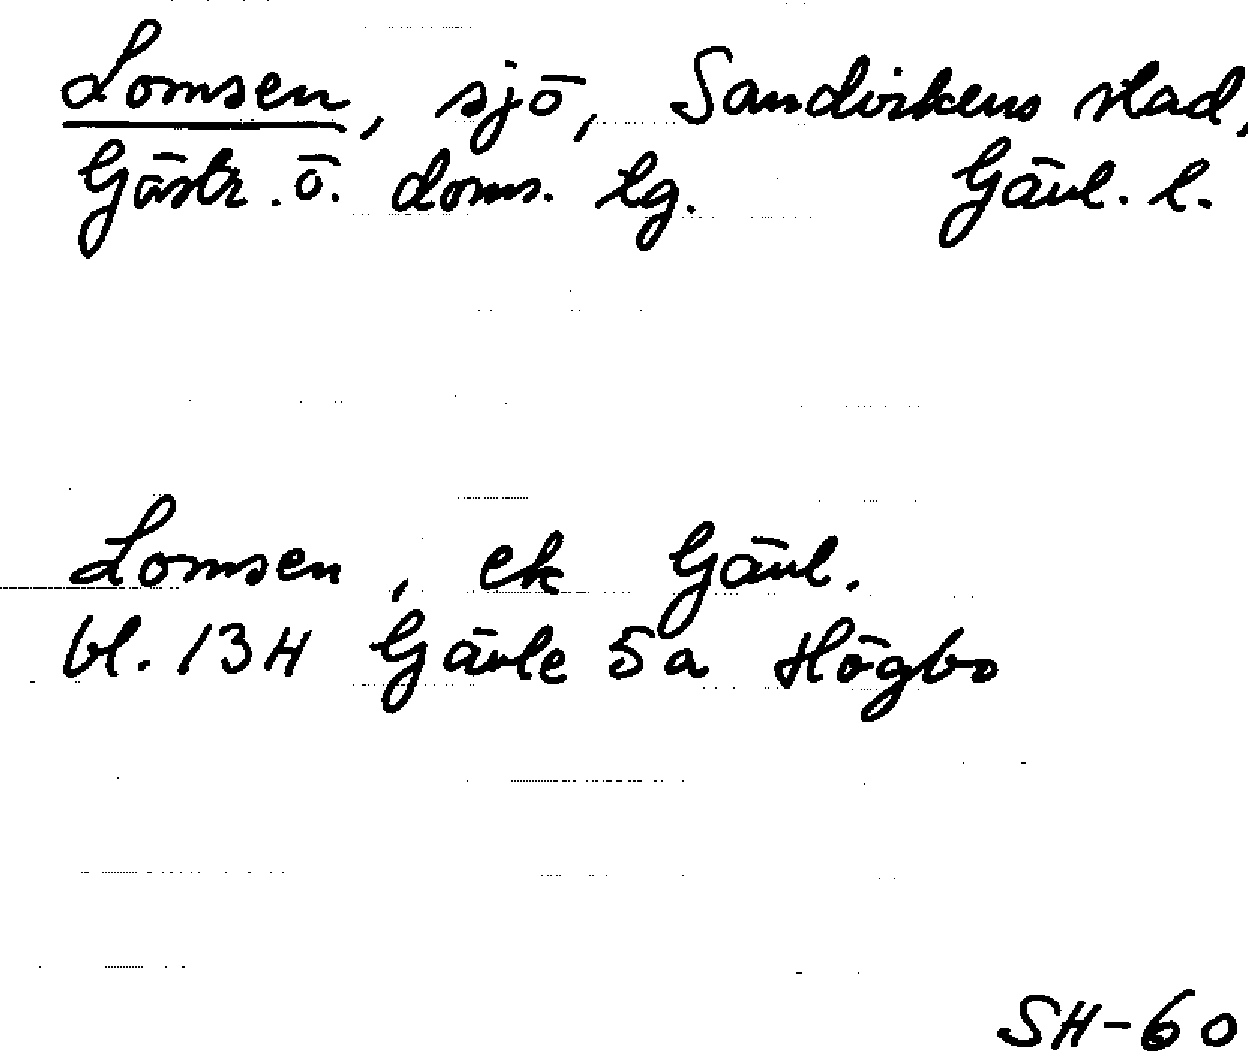 Lomsen, sjö, Sandvikens stad,
Gästr. ö. doms. lg. Gävl. l.
Lomsen, ek Gävl.
bl. 13H Gävle 5a Högbo
SH-60